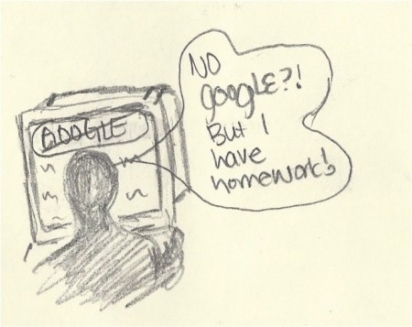 GOOGLE
NO
google?!
But I
have
homework!